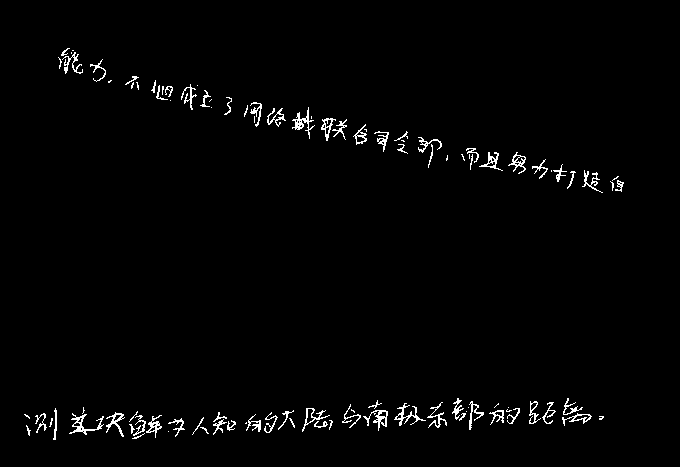 能力,不但成立了网络战联合司令部,而且努力打造自
测某块鲜为人知的大陆与南极东部的距离。